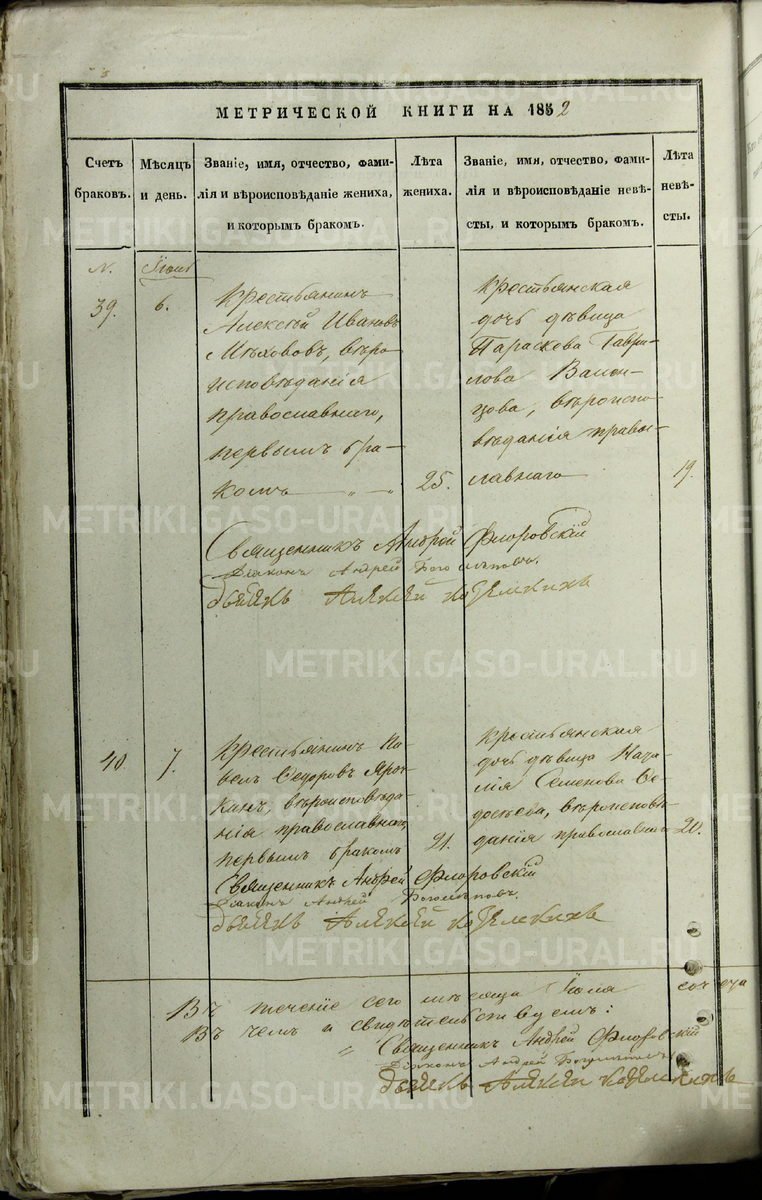 МЕТРИЧЕСКОЙ КНИГИ НА 1852
Счетъ
браковъ.
Мѣсяцъ
и день.
Званіе, имя, отчество, фами-
лія и вѣроисповѣданіе жениха,
и которымъ бракомъ.
Лѣта
жениха.
Званіе, имя, отчество, фами-
лія и вѣроисповѣданіе невѣ-
сты, и которымъ бракомъ.
Лѣта
невѣ-
сты.
N.
39.
6.
Крестьянинъ
Алексѣй Ивановъ
Мѣховъ, вѣро
исповѣданія
православнаго,
первымъ бра-
комъ
25.
Крестьянская
дочь дѣвица
Параскева Гаври-
лова
вѣроиспо-
вѣданія правос-
лавнаго
19.
Священникъ Андрей Флоровскій
Діаконъ Андрей
Дьячекъ Алексей
40.
7.
Крестьянинъ Па-
велъ Ѳедоровъ Ероч-
кинъ, вѣроисповѣда-
нія православнаго,
первымъ бракомъ
21.
Крестьянская
дочь дѣвица Ната-
лія Семенова Ѳе-
досѣева, вѣроисповѣ-
данія православнаго
20.
Священникъ Андрей Флоровскій
Діаконъ Андрей
Дьячекъ Алексей
Въ теченіе сего мѣсяца Іюля
Въ чемъ и свидѣтельствуемъ:
Священникъ Андрей Флоровскій
Діаконъ Андрей
Дьячекъ Алексей
METRIKI.GASO-URAL.RU